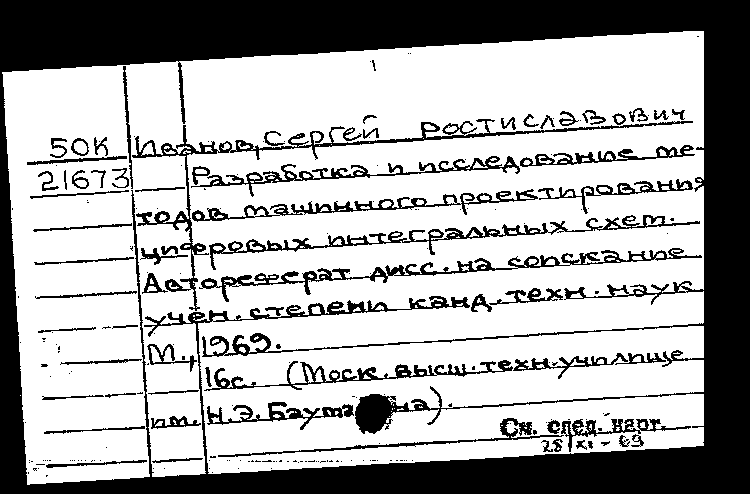 50К Иванов, Сергей Ростиславович
21673 Разработка и исследование ме-
тодов машинного проектирования
цифровых интегральных схем.
Автореферат дисс. на соискание
учён. степени канд. техн. наук
М., 1969.
16с. (Моск. высш. техн. училище
им. Н.Э. Баумана).
См. след. карт.
28/XI-69